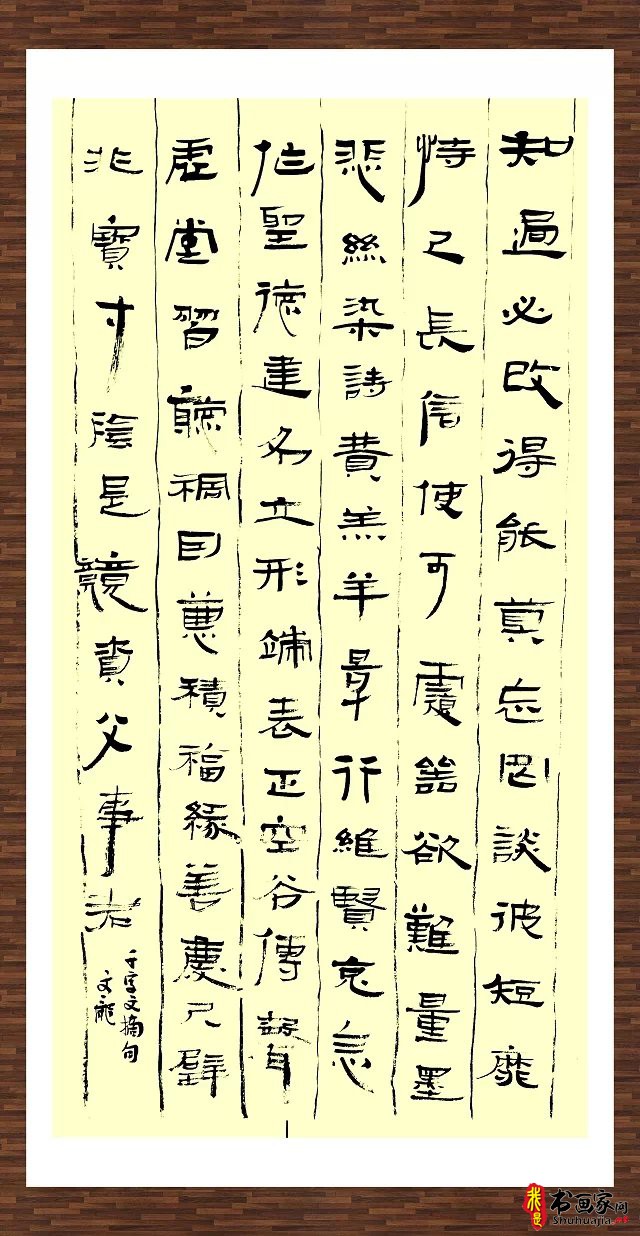 知過必改得能莫忘罔談彼短靡
恃己長信使可覆器欲難量墨
悲絲染詩費羔羊景行維賢克念
作聖德建名立形端表正空谷傳聲
虛堂習聽禍因惡積福緣善慶尺璧
非寶寸陰是競資父事君
千字文摘句
文龍
我是
书画家网
Shuhuajia